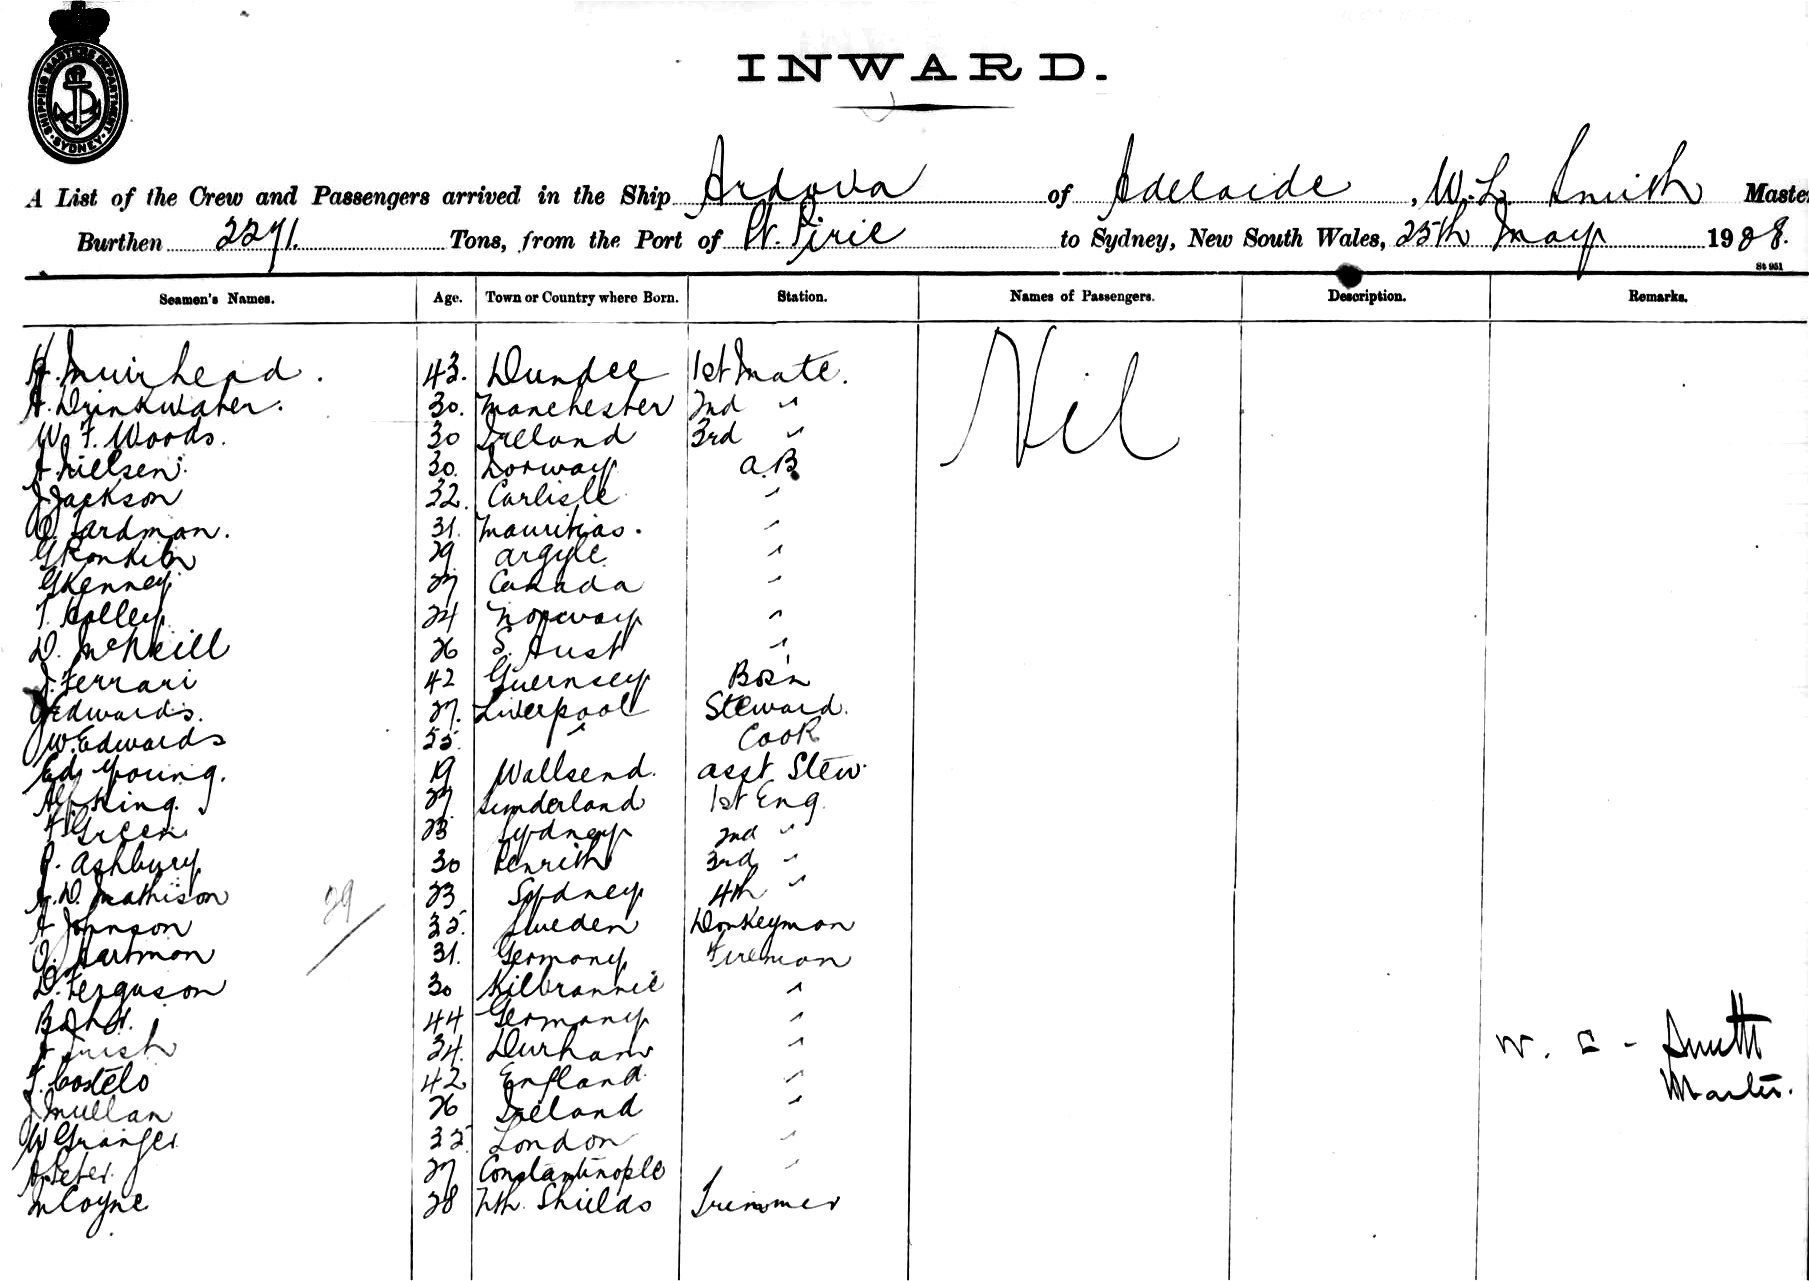 SHIPPING MASTERS DEPARTMENT · SYDNEY ·
INWARD.
A List of the Crew and Passengers arrived in the Ship Ardova of Adelaide, W. L. Smith Master
Burthen 2271. Tons, from the Port of Pt. Pirie to Sydney, New South Wales, 25th May 1908.
St 951
Seamen's Names. Age. Town or Country where Born. Station. Names of Passengers. Description. Remarks.
Nil
Muirhead. 43. Dundee 1st Mate.
A. Drinkwater. 30. Manchester 2nd "
W. F. Woods. 30 Ireland 3rd "
A. Nielsen. 30. Norway A.B
J Jackson 32. Carlisle "
Hardman. 31. Mauritias. "
G 29 Argyle "
G Kenney 27 Canada "
T. Holley 24 Norway "
D. McNeill 26 S. Aust "
J. Ferrari 42 Guernsey Bos'n
Edwards. 27. Liverpool Steward.
W. Edwards 55. " Cook
Ed Young. 19 Wallsend. Asst Stew.
Alf King. 27 Sunderland 1st Eng.
F Green 23 Sydney 2nd "
P. Ashbury 30 Penrith 3rd "
D. Mathison 23 Sydney 4th "
29/
A Johnson 35. Sweden Donkeyman
O. Hartman 31. Germany Fireman
D. Ferguson 30 Kilbrannie "
44 Germany "
A Irish 34. Durham "
T. Costelo 42 England "
J Mullan 26 Ireland "
W Granger. 35 London "
A Peter. 27 Constantinople "
M Coyne 28 Nth. Shields Trimmer
W. L - Smith
Master.